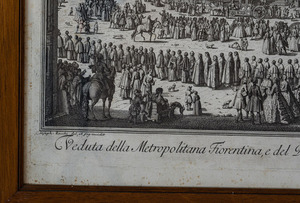 Veduta della Metropolitana Fiorentina, e del